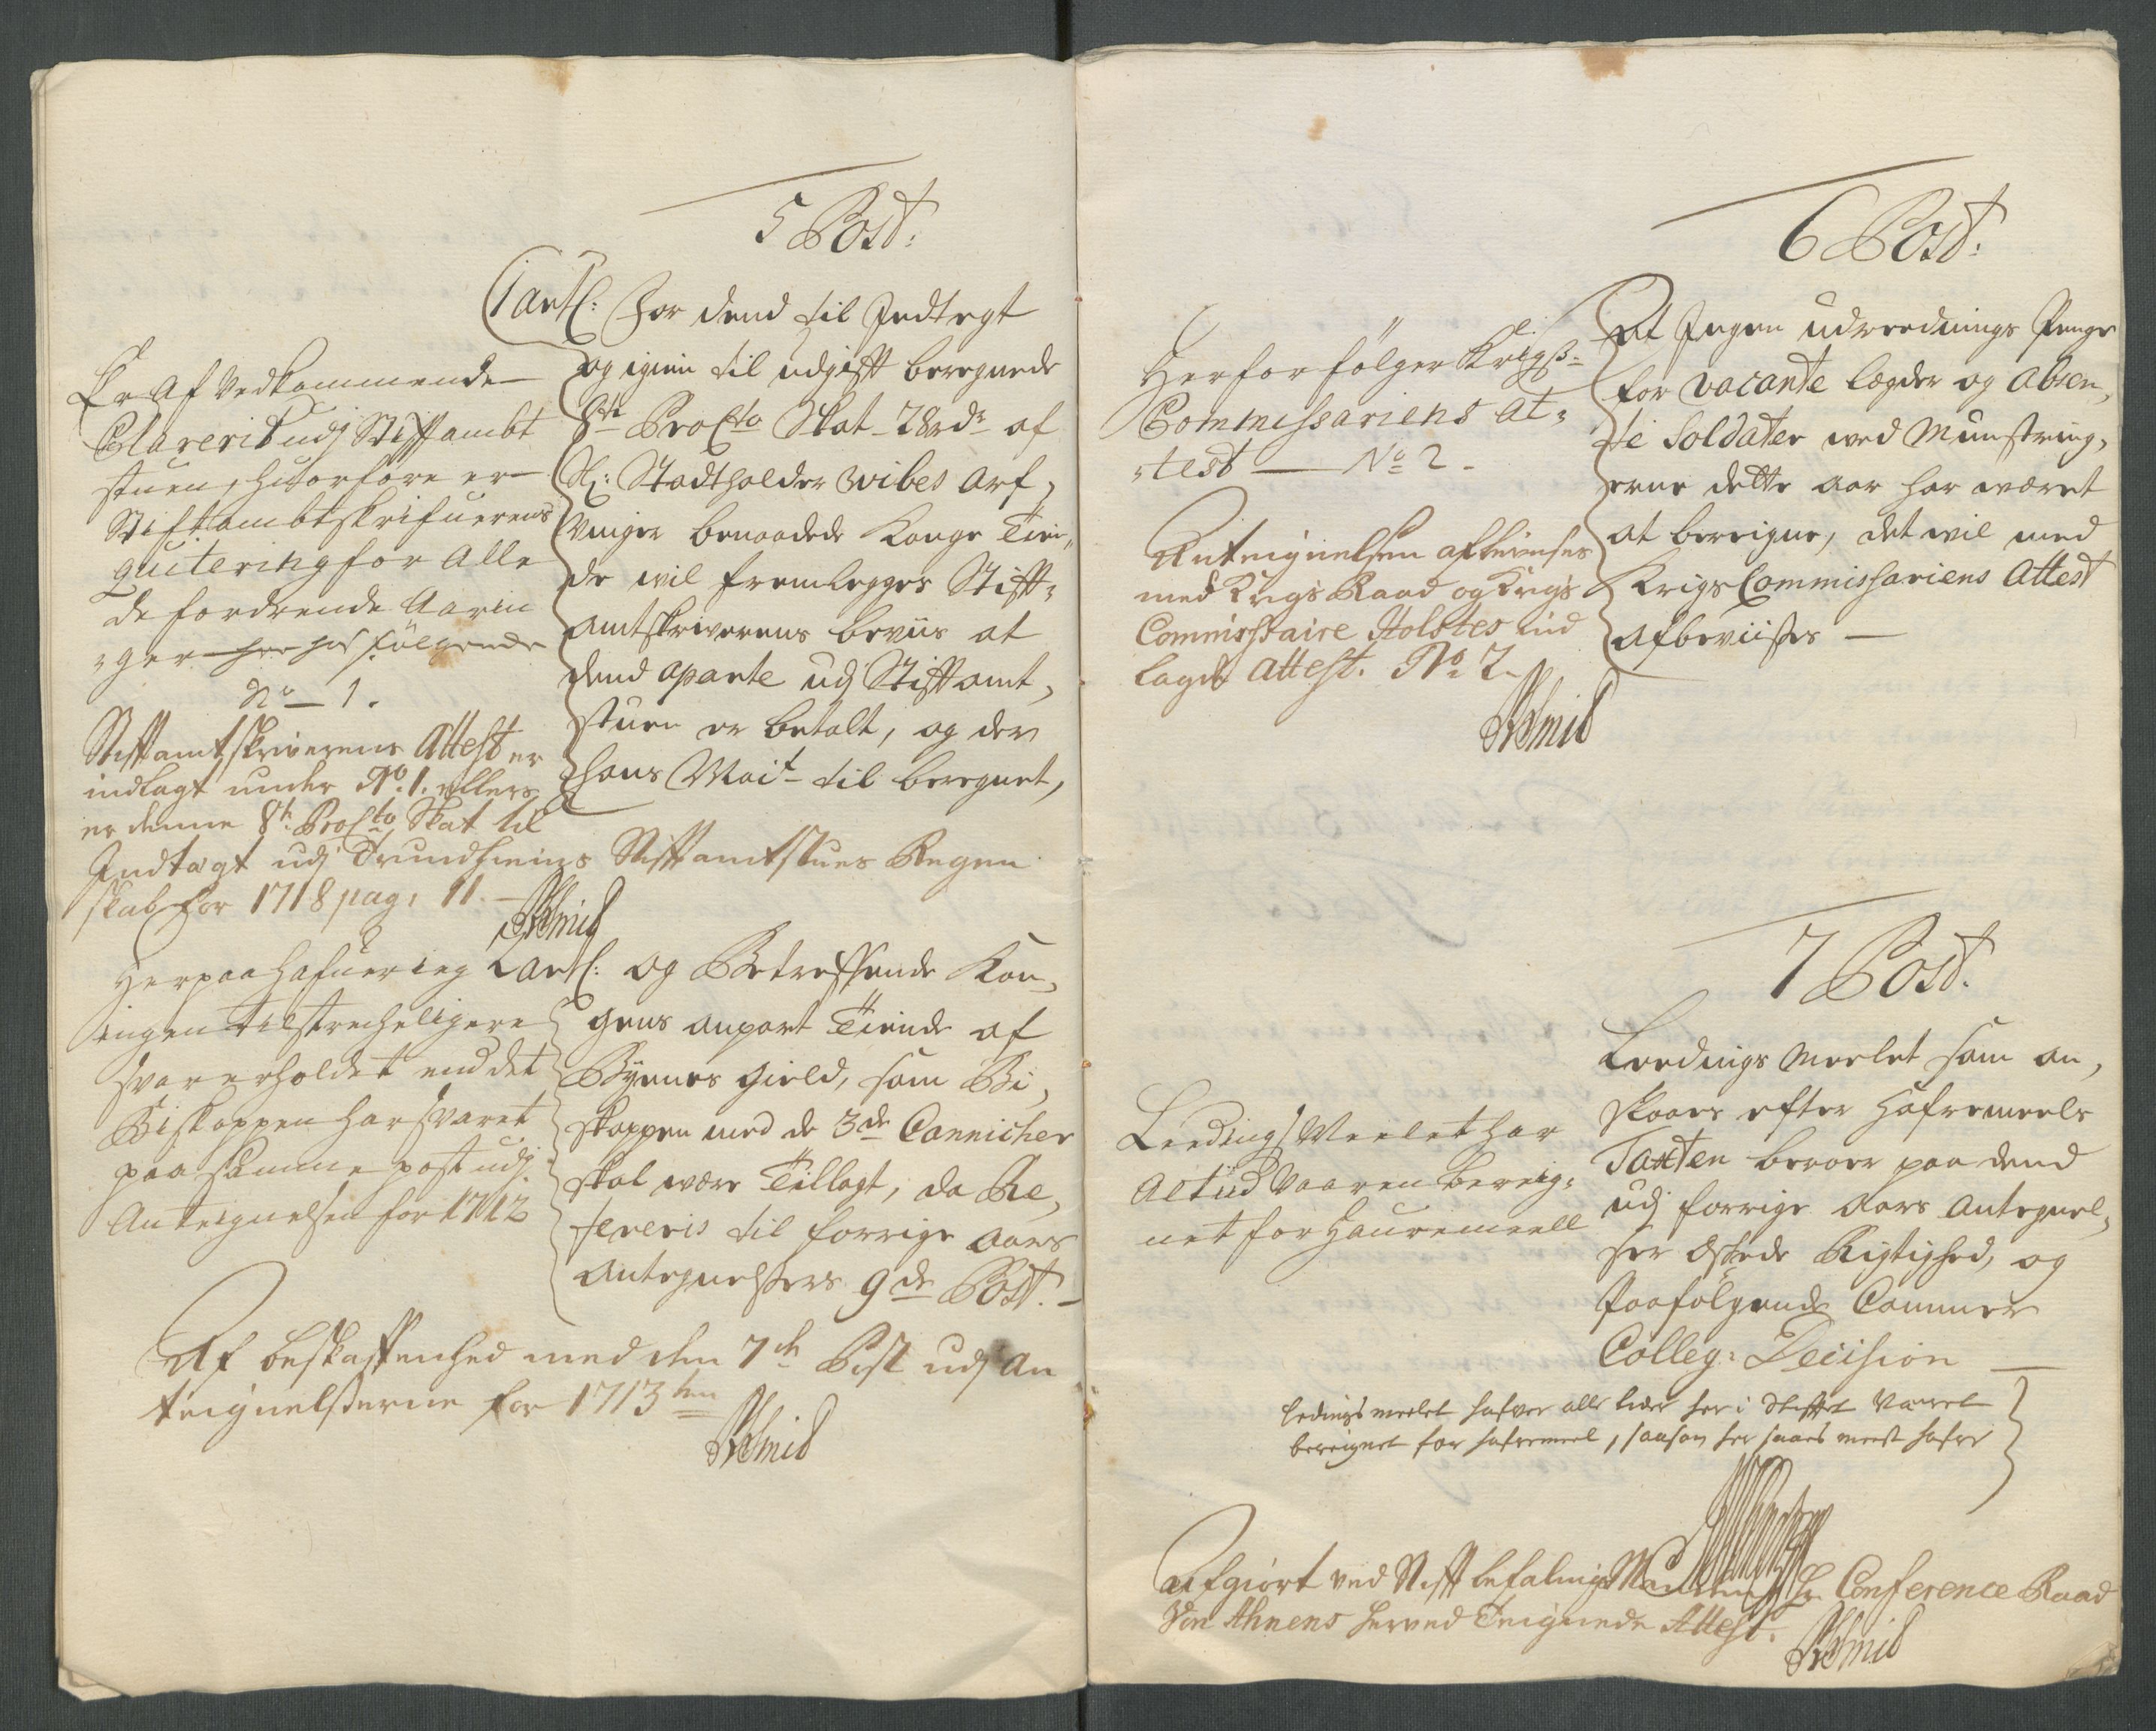 5 Post:
1 art: For dend til Indtegt
og igien til udgift beregnede
8te ProCto Skat 28 rdr af
Sl: Stadtholder Wibes Arf,
vinger benaadede Konge Tien,,
de wil fremlegges Stift-
amtskriverens beviis at
dend aparte udj Stiftamt,
stuen er betalt, og der
hans Mait til beregnet,
Er Af Vedkommende
Clarerit udj Stiftambt
stuen, huorfore er
Stiftambtskrifuerens
quitering for Alle
de fordrende Aarin
ger her hos følgende
No 1.
Stiftamtskriverens Attest er
indlagt under No. 1. ellers
er denne 8te ProCto Skat til
Indtægt udj Trundhiems Stiftamtstues Regen
skab for 1718 pag: 11.
2 art: og Betreffende Kon,
gens anpart Tiende af
Byenes gield, som Bi,
skoppen med de 3de Cannicher
skal være Tillagt, da Re,
fereris til forrige aars
antegnelsers 9de Post.
Herpaa hafuer ieg
ingen tilstrecheligere
svar erholdet end det
Biskoppen har svaret
paa samme post udj
Anteignelsen for 1712
Af beskaffenhed med den 7de Post udj An
teignelserne for 1713ten
6 Post:
At Ingen udreednings Penge
for vacante legder og absen,
te Soldater ved Mynstring,
erne dette aar har været
at bereigne, det wil med
KrigsCommissariens Attest
afbeviises
Herfor følger Krigs-
Commissariens At-
test No 2
Anteignelsen afbevises
med Krigs Raad og Krigs
Commissaire Holstes ind
lagde attest. No. 2.
7 Post.
Leedings Meelet som an,
slaaes efter Hafremeels
Taxten beroer paa dend
udj forrige Aars Antegnel,
ser Eskede Rigtighed, og
Paafølgende Cammer
Colleg: Decision
Leedings Meelet har
Altiid Vaaren bereig-
net for Hauremeell
Ledings meelet hafver alle tider her i Stiftet Været
bereignet for hafremeel, saasom her saaes meest hafre
Afgiort ved Stiftbefalings Manden Hr. Conference Raad
Von Ahnens herved Teignede Attest.